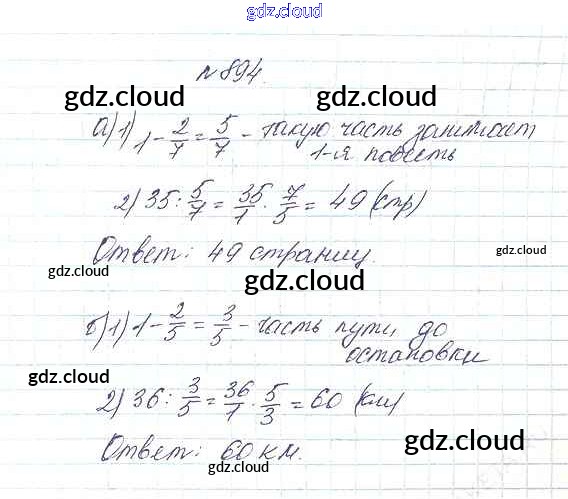 gdz.cloud
№ 894.
gdz.cloud gdz.cloud
а) 1) 1 - 2/7 = 5/7 - такую часть занимает
1-я повесть
2) 35 : 5/7 = 35/1 · 7/5 = 49 (стр)
gdz.cloud
Ответ: 49 страниц.
gdz.cloud gdz.cloud
б) 1) 1 - 2/5 = 3/5 - часть пути, до
остановки
gdz.cloud
2) 36 : 3/5 = 36/1 · 5/3 = 60 (км)
gdz.cloud
Ответ: 60 км.
gdz.cloud